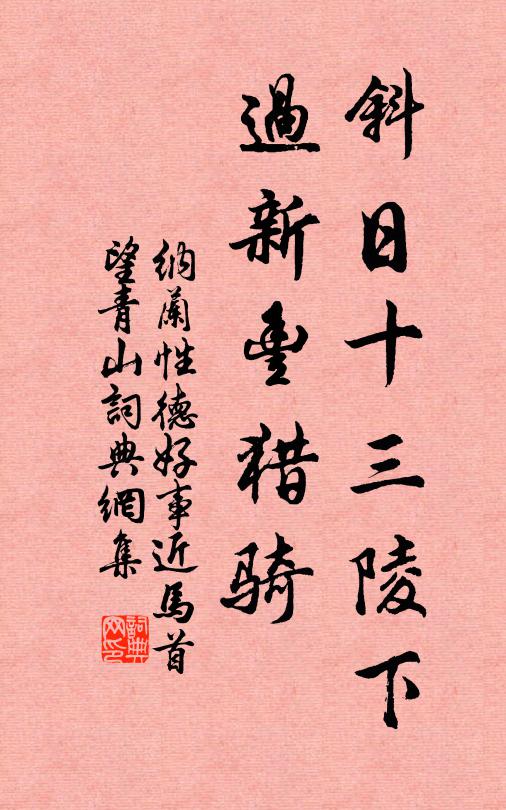 斜日十三陵下
過新豐猎骑
纳蘭性德好事近馬首
望青山詞典網集
詞典网印